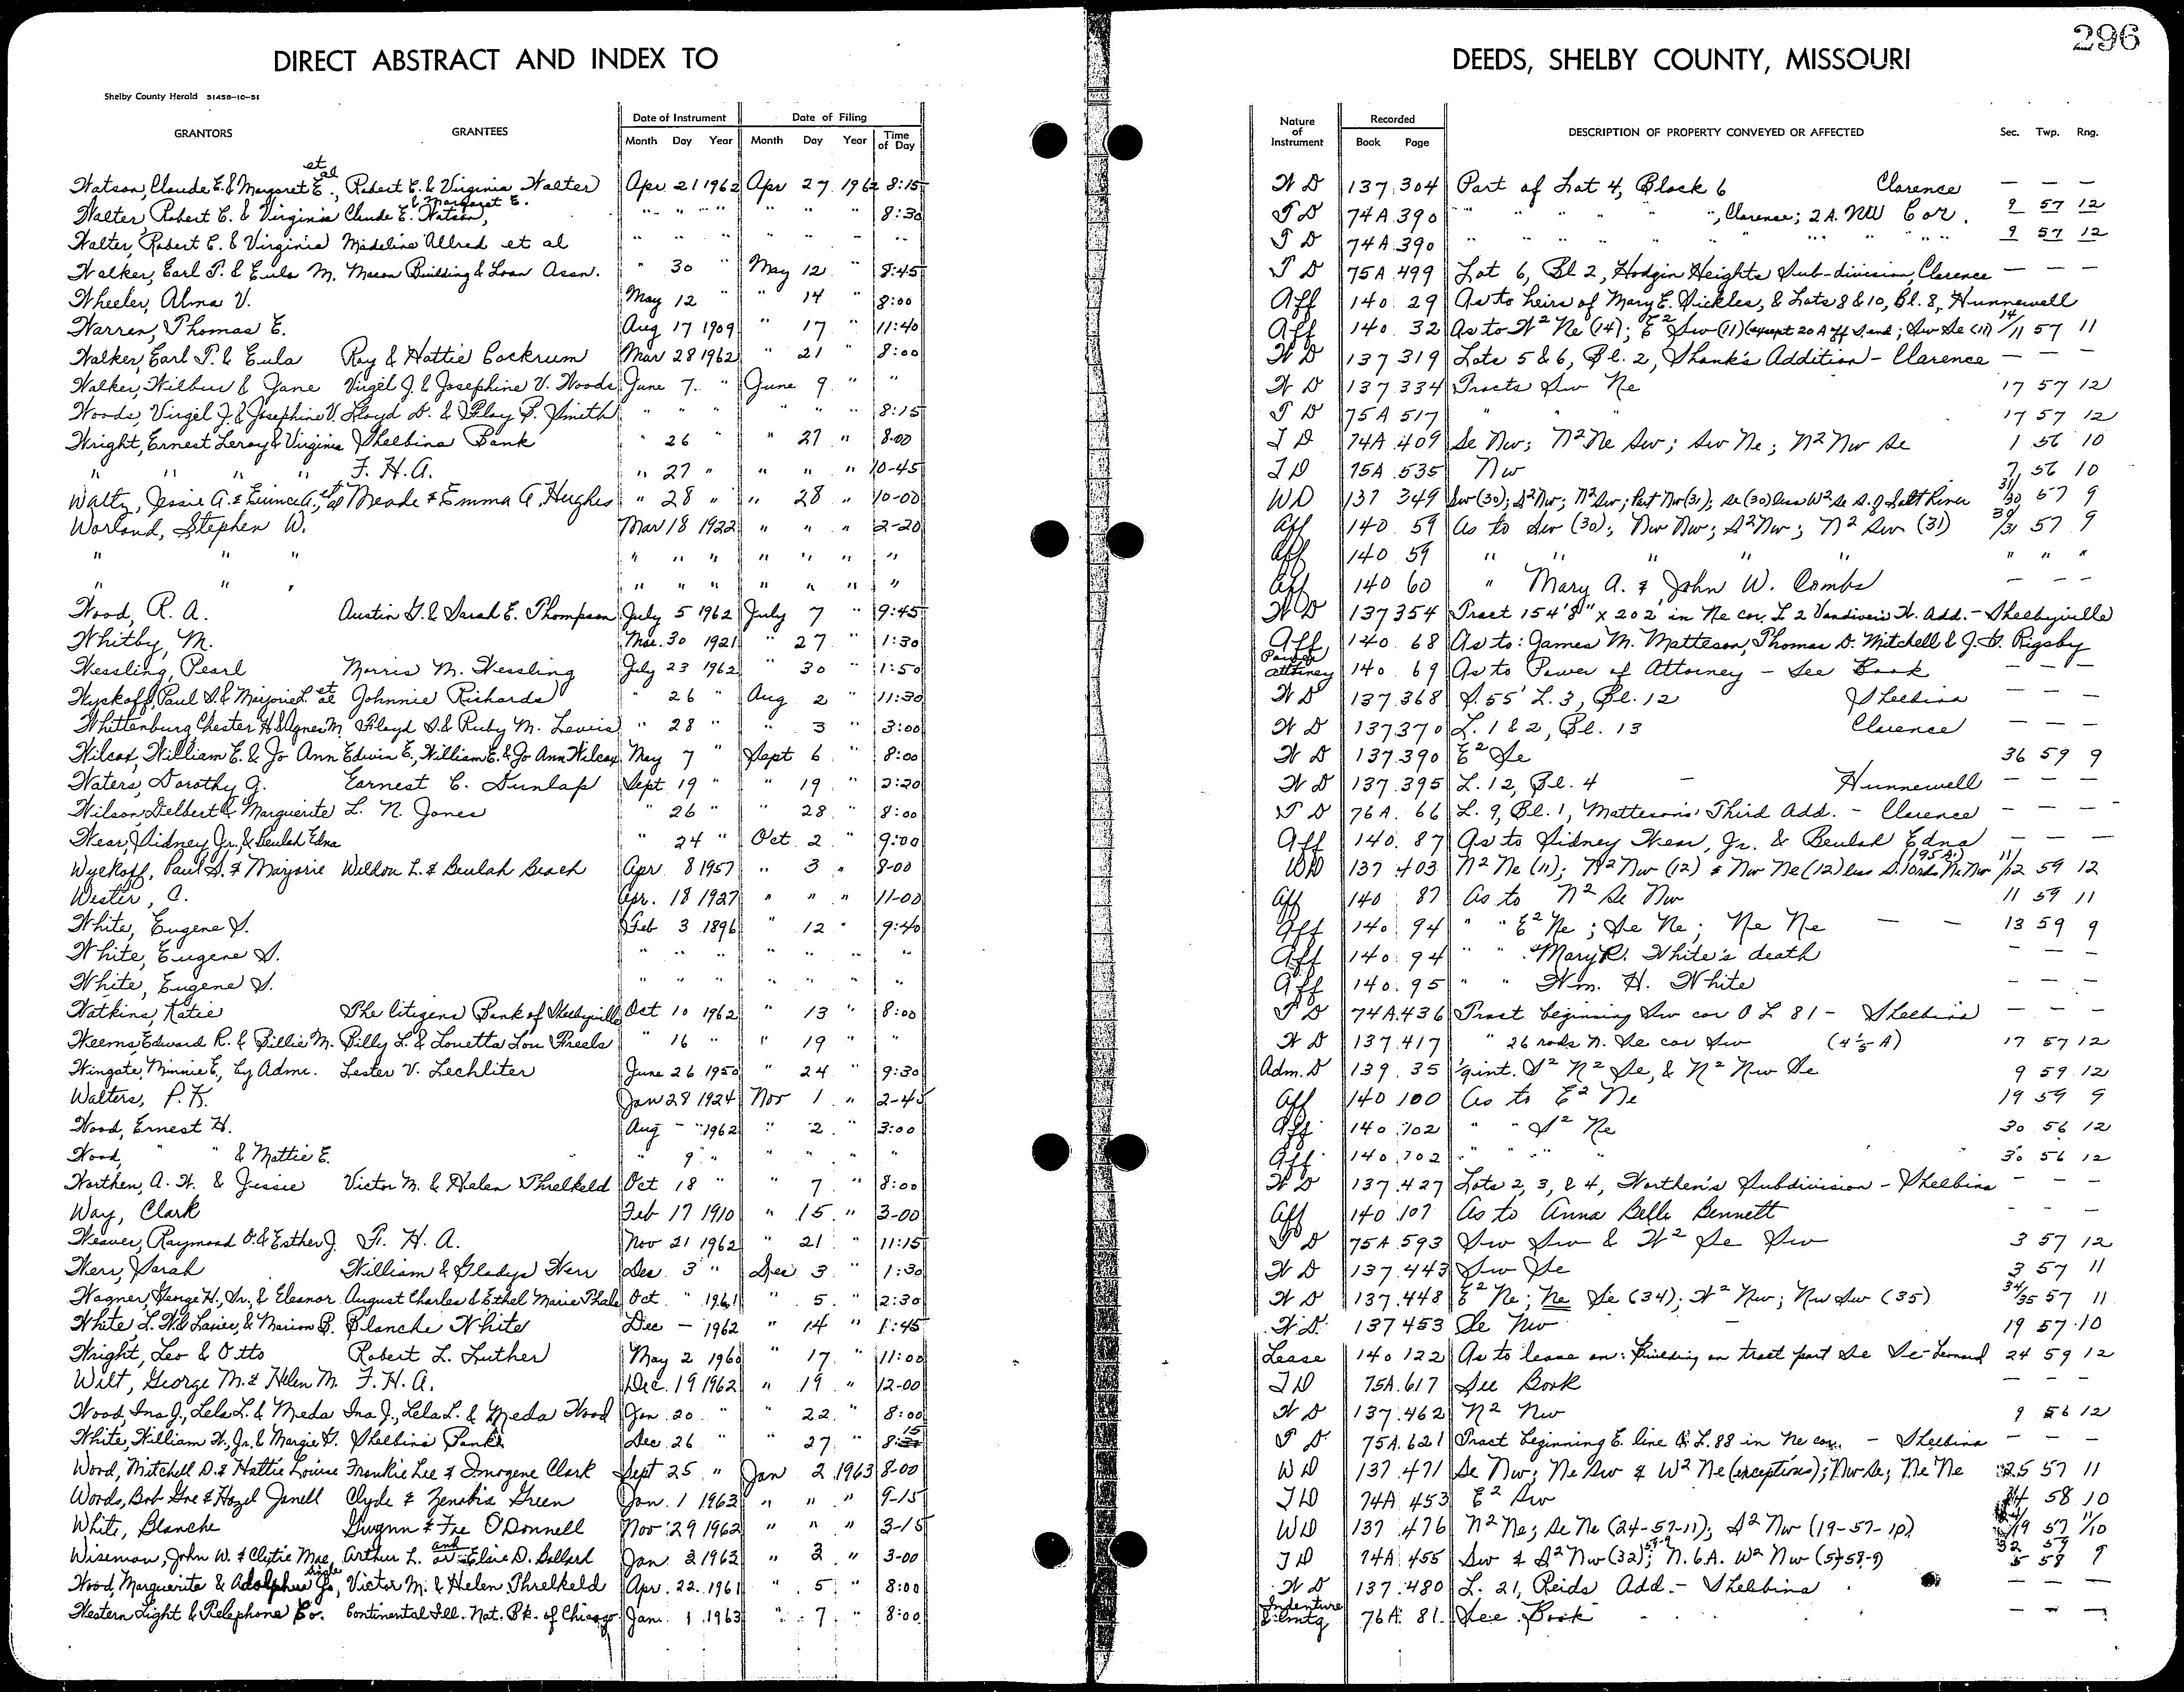 296
DIRECT ABSTRACT AND INDEX TO DEEDS, SHELBY COUNTY, MISSOURI
Shelby County Herald 5145B-10-51
GRANTORS GRANTEES Date of Instrument Month Day Year Date of Filing Month Day Year Time of Day Nature of Instrument Recorded Book Page DESCRIPTION OF PROPERTY CONVEYED OR AFFECTED Sec. Twp. Rng.
Watson, Claude E. & Margaret E., et al Robert C. & Virginia Walter Apr 21 1962 Apr 27 1962 8:15 W D 137 304 Part of Lot 4, Block 6 Clarence — — —
Walter, Robert C. & Virginia Claude E. & Margaret E. Watson, " " " " " " 8:30 T D 74A 390 " " " " ", Clarence; 2 A. NW Cor. 9 57 12
Walter, Robert C. & Virginia Madeline Allred et al " " " " " " " T D 74A 390 " " " " " " " " 9 57 12
Walker, Earl T. & Eula M. Macon Building & Loan Assn. " 30 " May 12 " 8:45 T D 75A 499 Lot 6, Bl 2, Hodgin Heights Sub-division, Clarence — — —
Wheeler, Alma V. May 12 " " 14 " 8:00 Aff 140 29 As to heirs of Mary E. Sickles, & Lots 8 & 10, Bl. 8, Hunnewell
Warren, Thomas E. Aug 17 1909 " 17 " 11:40 Aff 140 32 As to W² Ne (14); E² Sw (11) (except 20 A off S end; Sw Se (11) 14/11 57 11
Walker, Earl T. & Eula Roy & Hattie Cockrum Mar 28 1962 " 21 " 8:00 W D 137 319 Lots 5 & 6, Bl. 2, Shank's Addition - Clarence — — —
Walker, Wilbur & Jane Virgel J. & Josephine V. Woods June 7 " June 9 " " W D 137 334 Tracts Sw Ne 17 57 12
Woods, Virgel J. & Josephine V. Lloyd D. & Floy P. Smith " " " " " " 8:15 T D 75A 517 " " " 17 57 12
Wright, Ernest Leroy & Virginia Shelbina Bank " 26 " " 27 " 8-00 T D 74A 409 Se Nw; N² Ne Sw; Sw Ne; N² Nw Se 1 56 10
" " " " F. H. A. " 27 " " " " 10-45 T D 75A 535 Nw 7 56 10
Waltz, Jessie A. & Eunice A., et al Meade & Emma A. Hughes " 28 " " 28 " 10-00 WD 137 349 Sw (30); S² Nw; N² Sw; Part Nw (31); Se (30) less W² Se S. of Salt River 31/30 57 9
Worland, Stephen W. Mar 18 1922 " " " 2-20 Aff 140 59 As to Sw (30); Nw Nw; S² Nw; N² Sw (31) 30/31 57 9
" " " " " " " " " " Aff 140 59 " " " " " " " "
" " " " " " " " " " Aff 140 60 " Mary A. & John W. Combs — — —
Wood, R. A. Austin G. & Sarah E. Thompson July 5 1962 July 7 " 9:45 W D 137 354 Tract 154'8" x 202' in Ne cor. L 2 Vandiver's W. Add. - Shelbyville
Whitby, M. Mar. 30 1921 " 27 " 1:30 Aff 140 68 As to: James M. Matteson, Thomas D. Mitchell & J. G. Rigsby
Wessling, Pearl Morris M. Wessling July 23 1962 " 30 " 1:50 Power attorney 140 69 As to Power of Attorney - See Book — — —
Wyckoff, Paul S. & Marjorie L. et al Johnnie Richards " 26 " Aug 2 " 11:30 W D 137 368 S. 55' L. 3, Bl. 12 Shelbina — — —
Whittenburg Chester H. & Agnes M. Floyd S. & Ruby M. Lewis " 28 " " 3 " 3:00 W D 137 370 L. 1 & 2, Bl. 13 Clarence — — —
Wilcox, William E. & Jo Ann Edwin E., William E. & Jo Ann Wilcox May 7 " Sept 6 " 8:00 W D 137 390 E² Se 36 59 9
Waters, Dorothy G. Earnest C. Dunlap Sept 19 " " 19 " 2:20 W D 137 395 L. 12, Bl. 4 - Hunnewell — — —
Wilson, Delbert & Marguerite L. N. Jones " 26 " " 28 " 8:00 T D 76A 66 L. 9, Bl. 1, Matteson's Third Add. - Clarence — — —
Wear, Sidney Jr., & Beulah Edna " 24 " Oct 2 " 9:00 Aff 140 87 As to Sidney Wear, Jr. & Beulah Edna — — —
Wyckoff, Paul S. & Marjorie Weldon L. & Beulah Beach Apr 8 1957 " 3 " 8-00 WD 137 403 N² Ne (11); N² Nw (12) & Nw Ne (12) less S. 10 rds Ne Nw 11/12 59 12
Wester, C. Apr. 18 1927 " " " 11-00 Aff 140 87 As to N² Se Nw 11 59 11
White, Eugene S. Feb 3 1896 " 12 " 9:40 Aff 140 94 " " E² Ne; Se Ne; Ne Ne — — 13 59 9
White, Eugene S. " " " " " " " Aff 140 94 " " Mary R. White's death — —
White, Eugene S. " " " " " " " Aff 140 95 " " Wm. H. White — —
Watkins, Katie The Citizens Bank of Shelbyville Oct 10 1962 " 13 " 8:00 T D 74A 436 Tract beginning Sw cor O L 81 - Shelbina — — —
Weems, Edward R. & Billie M. Billy L. & Louetta Lou Freels " 16 " " 19 " " W D 137 417 " 26 rods N. Se cor Sw (4 1/5 A) 17 57 12
Wingate, Minnie E, by Admr. Lester V. Lechliter June 26 1950 " 24 " 9:30 Adm. D 139 35 S² N² Se, & N² Nw Se 9 59 12
Walters, P. K. Jan 28 1924 Nov 1 " 2-45 Aff 140 100 As to E² Ne 19 59 9
Wood, Ernest H. Aug - 1962 " 2 " 3:00 Aff 140 102 " " S² Ne 30 56 12
Wood, " & Mattie E. " 9 " " " " " Aff 140 102 " " " " 30 56 12
Worthen, A. W. & Jessie Victor M. & Helen Threlkeld Oct 18 " " 7 " 8:00 W D 137 427 Lots 2, 3, & 4, Worthen's Subdivision - Shelbina — — —
Way, Clark Feb 17 1910 " 15 " 3-00 Aff 140 107 As to Anna Belle Bennett — — —
Weaver, Raymond O. & Esther J. F. H. A. Nov 21 1962 " 21 " 11:15 T D 75A 593 Sw Sw & W² Se Sw 3 57 12
Werr, Sarah William & Gladys Werr Dec 3 " Dec 3 " 1:30 W D 137 443 Sw Se 3 57 11
Wagner, George H., Sr., & Eleanor August Charles & Ethel Marie Thale Oct " 1961 " 5 " 2:30 W D 137 448 E² Ne; Ne Se (34); W² Nw; Nw Sw (35) 34/35 57 11
White, L. W. & Marion B. Blanche White Dec - 1962 " 14 " 1:45 W. D. 137 453 Se Nw 19 57 10
Wright, Leo & Otto Robert L. Luther May 2 1960 " 17 " 11:00 Lease 140 122 As to lease on: Building on tract part Se Se-Leonard 24 59 12
Wilt, George M. & Helen M. F. H. A. Dec. 19 1962 " 19 " 12-00 T D 75A 617 See Book — — —
Wood, Ina J., Lela L. & Meda Ina J., Lela L. & Meda Wood Jan 20 " " 22 " 8:00 W D 137 462 N² Nw 9 56 12
White, William W., Jr. & Margie G. Shelbina Bank Dec 26 " " 27 " 8:15 T D 75A 621 Tract beginning E. line O. L. 88 in Ne cor. - Shelbina — — —
Wood, Mitchell D. & Hattie Louise Frankie Lee & Imogene Clark Sept 25 " Jan 2 1963 8-00 WD 137 471 Se Nw; Ne Sw & W² Ne (exceptions); Nw Se; Ne Ne 25 57 11
Woods, Bob Gre & Hazel Janell Clyde & Zenobia Green Jan. 1 1963 " " " 9-15 TD 74A 453 E² Sw 58 10
White, Blanche Gwynn & Fae O'Donnell Nov 29 1962 " " " 3-15 WD 137 476 N² Ne; Se Ne (24-57-11); S² Nw (19-57-10) 24/19 57 11/10
Wiseman, John W. & Clytie Mae, Arthur L. and Elsie D. Bollard Jan. 2 1962 " 3 " 3-00 TD 74A 455 Sw & S² Nw (32) 59-9; N. 6 A. W² Nw (5-58-9) 32 59 5 58 9
Wood, Marguerite & Adolphus Jr, single Victor M. & Helen Threlkeld Apr. 22 1961 " 5 " 8:00 W D 137 480 L. 21, Reids Add. - Shelbina — — —
Western Light & Telephone Co. Continental Ill. Nat. Bk. of Chicago Jan. 1 1963 " 7 " 8:00 Indenture 76A 81 See Book — — —